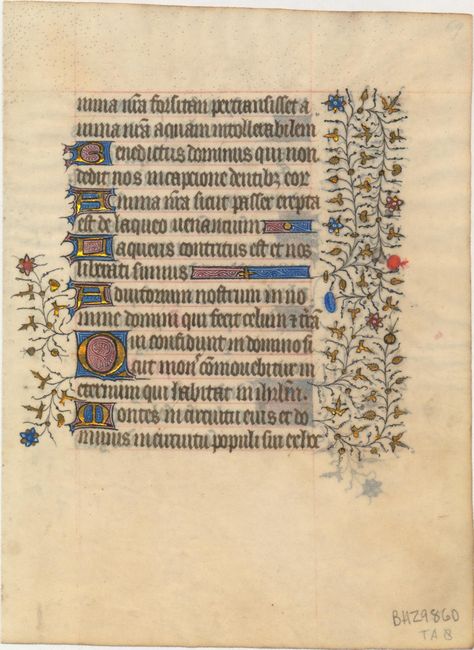 nima nr̃a forsitan pertransisset a
nima nr̃a aquam intollerabilem
Benedictus dominus qui non
dedit nos in capcione dentibꝫ eor
Anima nr̃a sicut passer erepta
est de laqueo uenantium
Laqueus contritus est et nos
liberati sumus
Adiutorium nostrum in no
mine domini qui fecit celum & tr̃a
Qui confidunt in domino si
cut mon᷒ cōmouebitur in
eternum qui habitat in ihrlm̄.
Montes in circuitu eius et do
minus in circuitu populi sui ex hoc
BHZ9860
TA 8